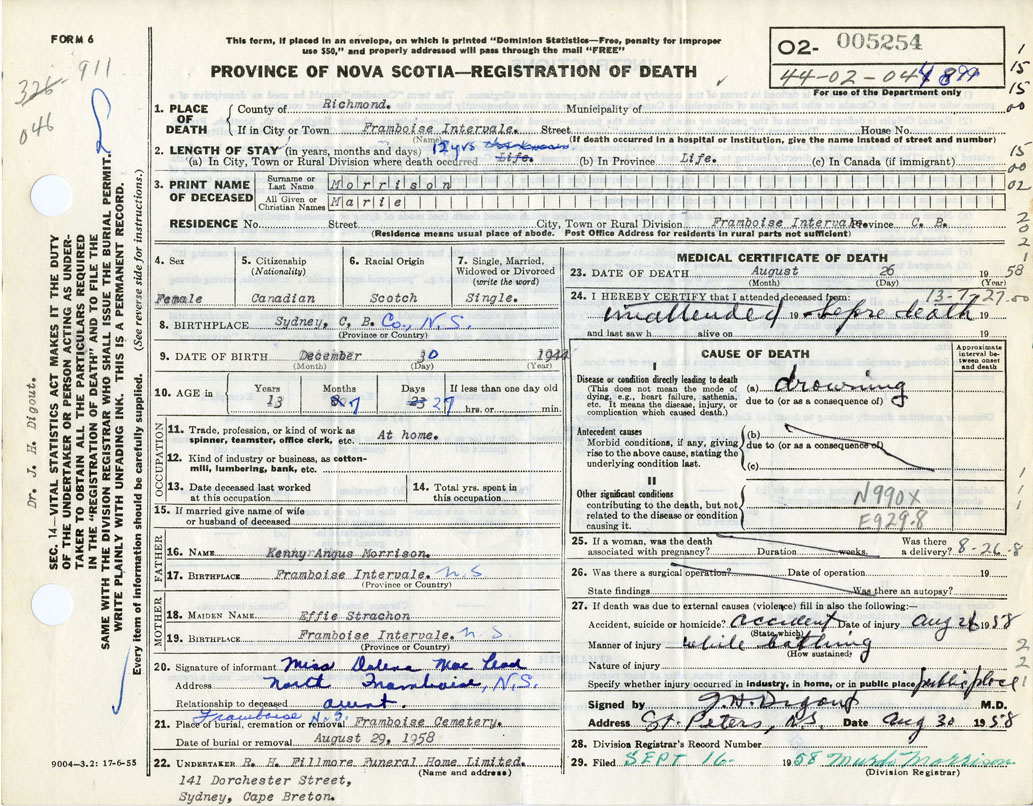 FORM 6
This form, if placed in an envelope, on which is printed "Dominion Statistics—Free, penalty for improper
use $50," and properly addressed will pass through the mail "FREE"
PROVINCE OF NOVA SCOTIA—REGISTRATION OF DEATH
02- 005254
44-02-04
For use of the Department only
326- 911
046
1. PLACE OF DEATH
County of Richmond. Municipality of
If in City or Town Framboise Intervale. Street House No.
(Name) (If death occurred in a hospital or institution, give the name instead of street and number)
2. LENGTH OF STAY (in years, months and days) 12 yrs
(a) In City, Town or Rural Division where death occurred Life. (b) In Province Life. (c) In Canada (if immigrant)
3. PRINT NAME OF DECEASED
Surname or Last Name Morrison
All Given or Christian Names Marie
RESIDENCE No. Street City, Town or Rural Division Framboise Intervale. Province C. B.
(Residence means usual place of abode. Post Office Address for residents in rural parts not sufficient)
4. Sex Female
5. Citizenship (Nationality) Canadian
6. Racial Origin Scotch
7. Single, Married, Widowed or Divorced (write the word) Single.
8. BIRTHPLACE Sydney, C, B. Co., N.S.
(Province or Country)
9. DATE OF BIRTH December 30 1944
(Month) (Day) (Year)
10. AGE in Years 13 Months 7 Days 27 If less than one day old hrs. or min.
OCCUPATION
11. Trade, profession, or kind of work as spinner, teamster, office clerk, etc. At home.
12. Kind of industry or business, as cotton-mill, lumbering, bank, etc.
13. Date deceased last worked at this occupation
14. Total yrs. spent in this occupation
15. If married give name of wife or husband of deceased
FATHER
16. NAME Kenny Angus Morrison.
17. BIRTHPLACE Framboise Intervale. N.S
(Province or Country)
MOTHER
18. MAIDEN NAME Effie Strachon
19. BIRTHPLACE Framboise Intervale. N.S.
(Province or Country)
20. Signature of informant Miss Dolena Mac Lead
Address North Framboise, N.S.
Relationship to deceased aunt.
Framboise N.S.
21. Place of burial, cremation or removal Framboise Cemetery.
Date of burial or removal August 29, 1958
22. UNDERTAKER R. H. Fillmore Funeral Home Limited.
(Name and address)
141 Dorchester Street,
Sydney, Cape Breton.
9004—3.2: 17-6-55
MEDICAL CERTIFICATE OF DEATH
23. DATE OF DEATH August 26 1958
(Month) (Day) (Year)
24. I HEREBY CERTIFY that I attended deceased from: 13-7-27
unattended 19 before death
and last saw h alive on 19
CAUSE OF DEATH
Approximate interval between onset and death
I
Disease or condition directly leading to death
(This does not mean the mode of dying, e.g., heart failure, asthenia, etc. It means the disease, injury, or complication which caused death.)
(a) drowning
due to (or as a consequence of)
Antecedent causes
Morbid conditions, if any, giving rise to the above cause, stating the underlying condition last.
(b)
due to (or as a consequence of)
(c)
II
Other significant conditions
contributing to the death, but not related to the disease or condition causing it.
N990X
E929.8
25. If a woman, was the death associated with pregnancy? Duration weeks. Was there a delivery? 8-26-8
26. Was there a surgical operation? Date of operation 19
State findings Was there an autopsy?
27. If death was due to external causes (violence) fill in also the following:—
Accident, suicide or homicide? accident Date of injury Aug 26 1958
(State which)
Manner of injury while bathing
(How sustained)
Nature of injury
Specify whether injury occurred in industry, in home, or in public place public place
Signed by J.H. Digout M.D.
Address St. Peters, N.S. Date Aug 30 1958
28. Division Registrar's Record Number
29. Filed SEPT 16- 1958 Murdo Morrison
(Division Registrar)
Dr. J. H. Digout.
SEC. 14—VITAL STATISTICS ACT MAKES IT THE DUTY
OF THE UNDERTAKER OR PERSON ACTING AS UNDER-
TAKER TO OBTAIN ALL THE PARTICULARS REQUIRED
IN THE "REGISTRATION OF DEATH" AND TO FILE THE
SAME WITH THE DIVISION REGISTRAR WHO SHALL ISSUE THE BURIAL PERMIT.
WRITE PLAINLY WITH UNFADING INK. THIS IS A PERMANENT RECORD.
Every item of information should be carefully supplied. (See reverse side for instructions.)